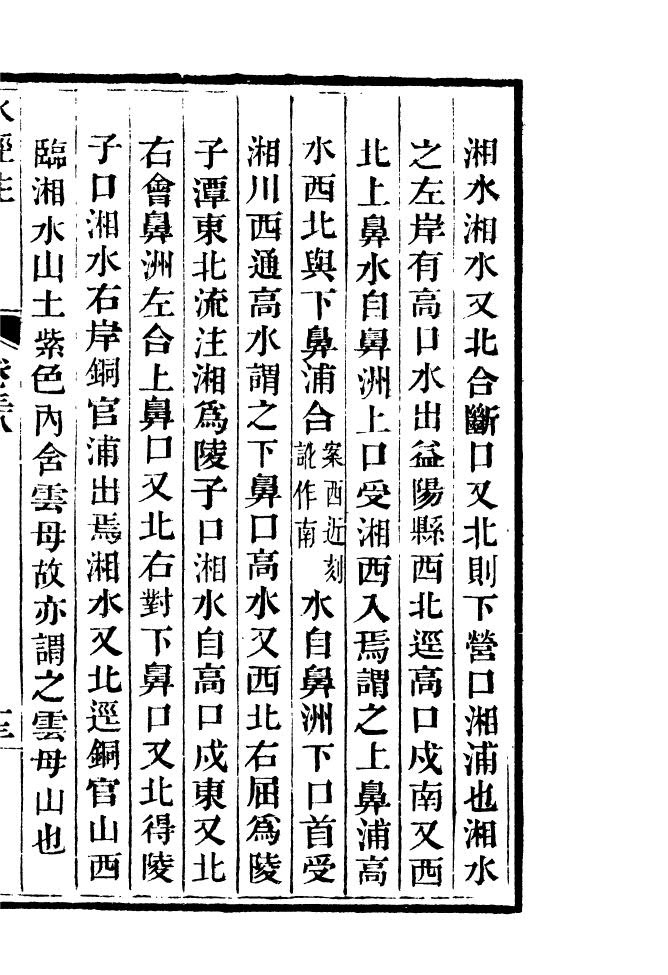 湘水湘水又北合斷口又北則下營口湘浦也湘水
之左岸有高口水出益陽縣西北逕高口戍南又西
北上鼻水自鼻洲上口受湘西入焉謂之上鼻浦高
水西北與下鼻浦合案西近刻訛作南水自鼻洲下口首受
湘川西通高水謂之下鼻口高水又西北右屈爲陵
子潭東北流注湘爲陵子口湘水自高口戍東又北
右會鼻洲左合上鼻口又北右對下鼻口又北得陵
子口湘水右岸銅官浦出焉湘水又北逕銅官山西
臨湘水山土紫色內含雲母故亦謂之雲母山也
水經注 卷三八